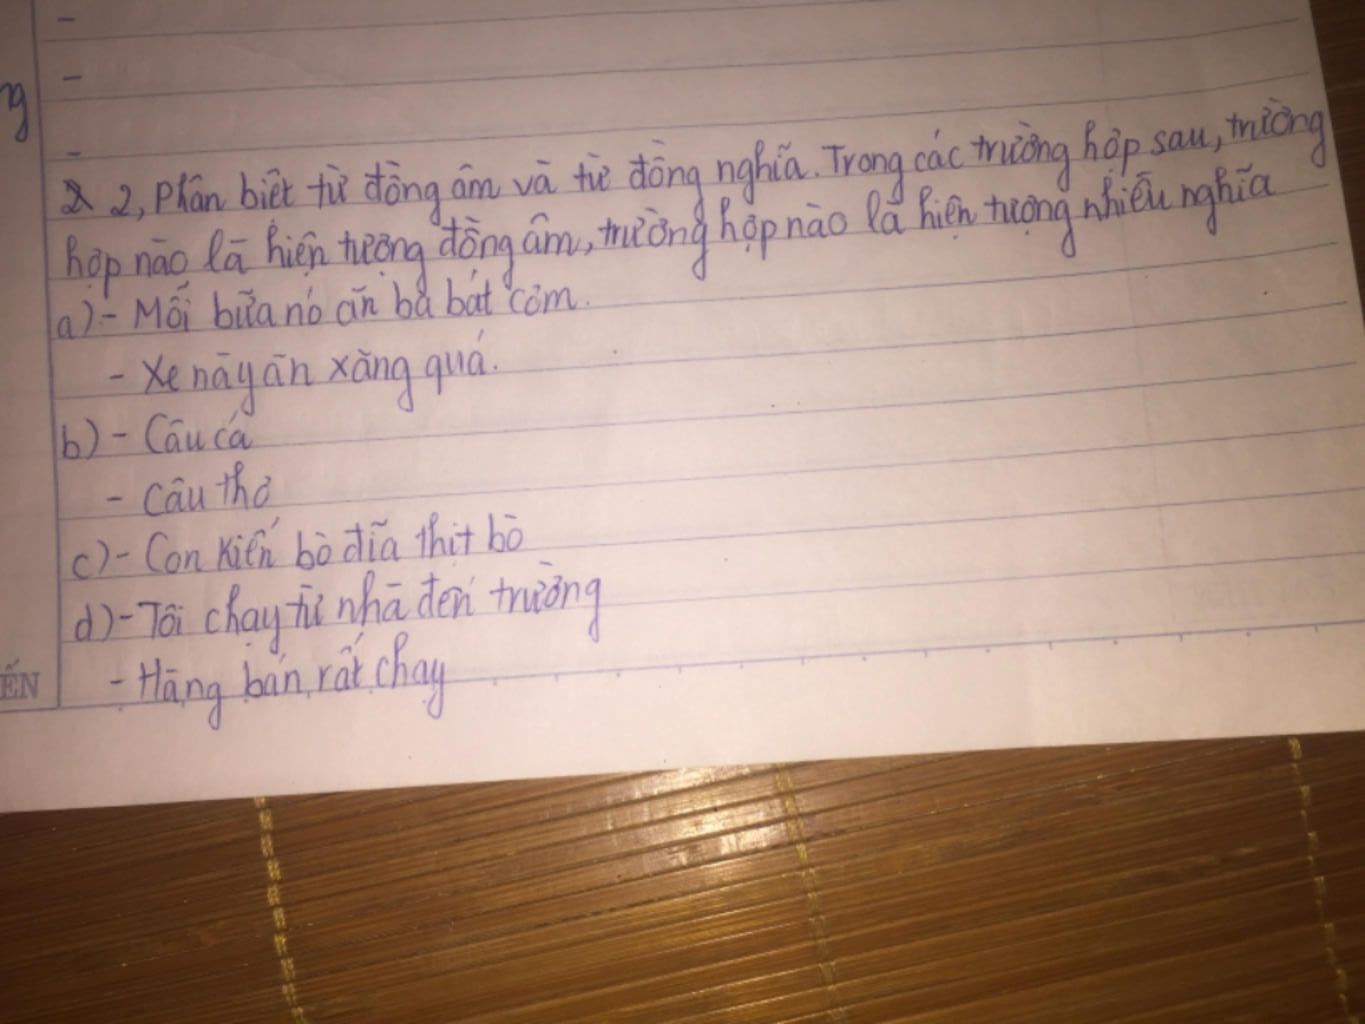 -
-
-
2, Phân biệt từ đồng âm và từ đồng nghĩa. Trong các trường hợp sau, trường
hợp nào là hiện tượng đồng âm, trường hợp nào là hiện tượng nhiều nghĩa
a) - Mỗi bữa nó ăn ba bát cơm.
- Xe này ăn xăng quá.
b) - Câu cá
- Câu thơ
c) - Con kiến bò đĩa thịt bò
d) - Tôi chạy từ nhà đến trường
- Hàng bán rất chạy